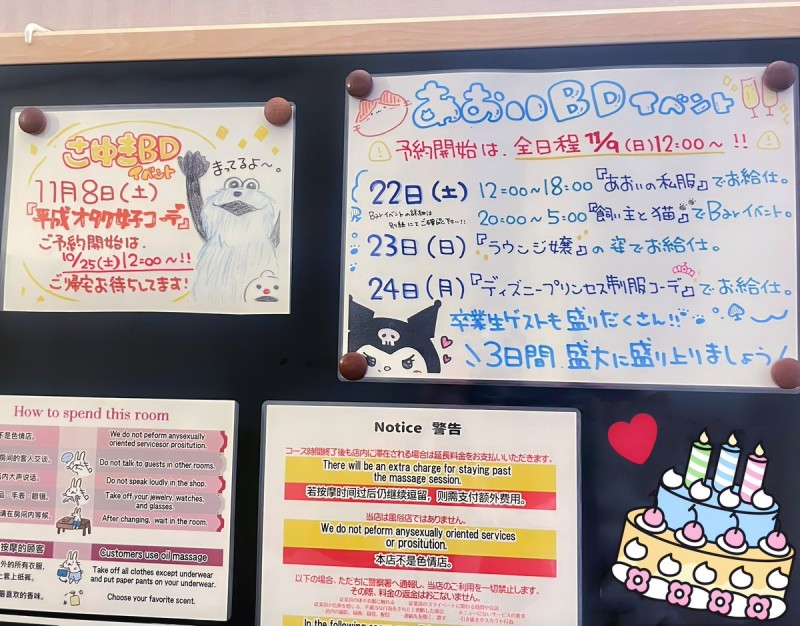 さゆきBD
イベント
11月8日(土)
『平成オタク女子コーデ』
ご予約開始は、
10/25(土)12:00〜!!
ご帰宅お待ちしてます!
まってるよ〜。
あおいBDイベント
予約開始は、全日程 11/9(日)12:00〜!!
22日(土) 12:00〜18:00『あおいの私服』でお給仕。
20:00〜5:00『飼い主と猫』でBarイベント。
23日(日)『ラウンジ嬢』の姿でお給仕。
24日(月)『ディズニープリンセス制服コーデ』でお給仕。
卒業生ゲストも盛りだくさん!!
3日間、盛大に盛り上りましょう
How to spend this room
不是色情店。
We do not peform anysexually
oriented servicesor prositution.
房间的客人交谈。
Do not talk to guests in other rooms.
内大声说话。
Do not speak loudly in the shop.
手表 眼镜。
Take off your jewelry, watches,
and glasses.
请在房间内等候。
After changing, wait in the room.
按摩的顾客
Customers use oil massage
外的所有衣服,
上套上纸裤。
Take off all clothes except underwear
and put paper pants on your underwear.
最喜欢的香味。
Choose your favorite scent.
Notice 警告
コース時間終了後も店内に滞在される場合は延長料金をお支払いいただきます。
There will be an extra charge for staying past
the massage session.
若按摩时间过后仍继续逗留,则需支付额外费用。
当店は風俗店ではありません。
We do not peform anysexually oriented services
or prositution.
本店不是色情店。
以下の場合、ただちに警察署へ通報し、当店のご利用を一切禁止します。
その際、料金の返金はおこないません。
In the following